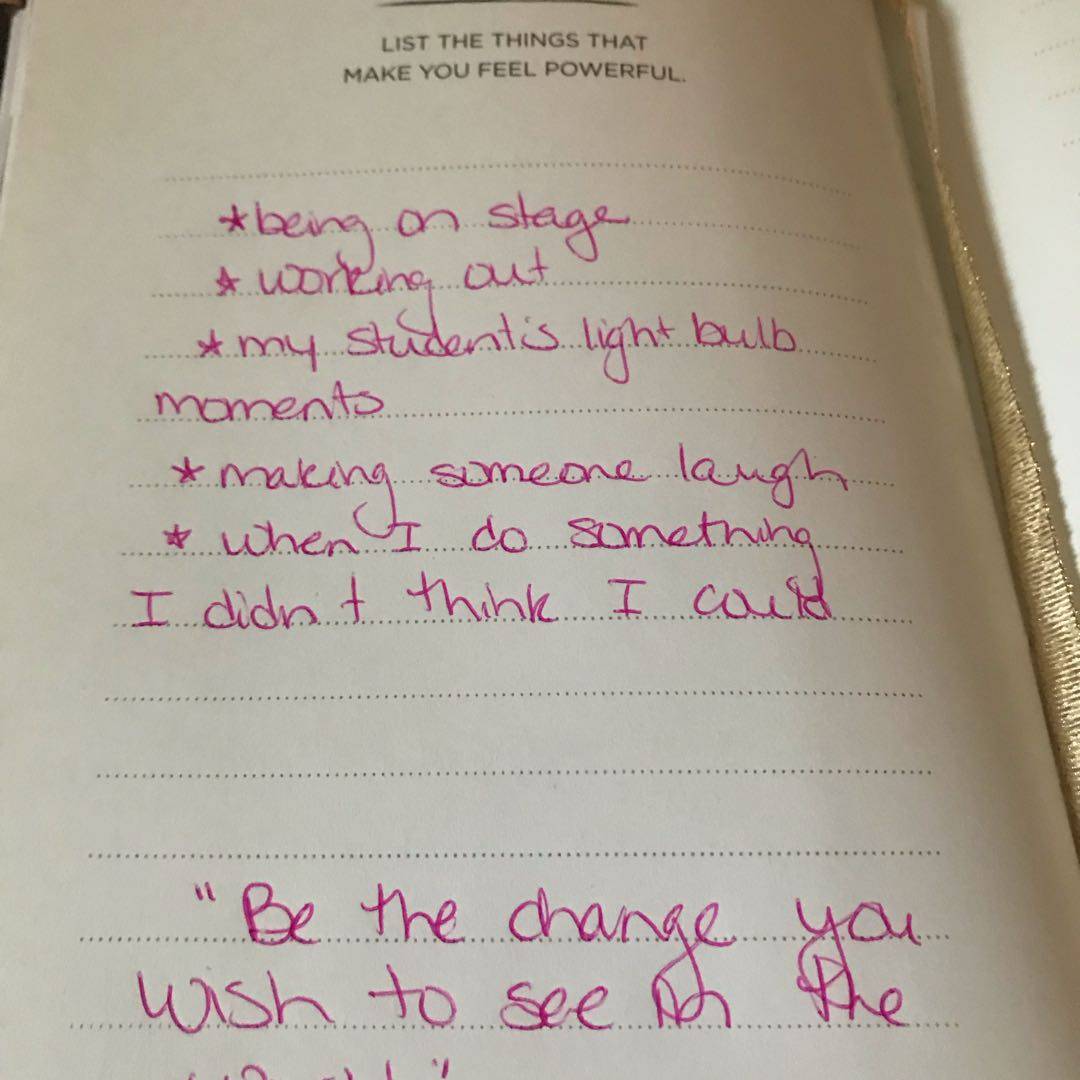 LIST THE THINGS THAT
MAKE YOU FEEL POWERFUL.
*being on stage
* working out
* my student's light bulb
moments
* making someone laugh
* when I do something
I didn't think I could
"Be the change you
wish to see in the
"